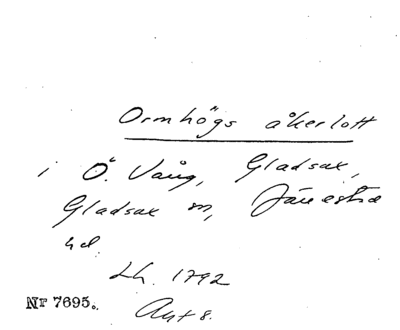 Ormhögs åkerlott
i Ö. Vång, Gladsax,
Gladsax sn, Järrestad
hd.
Lh. 1792
Akt 8.
Nr 7695.